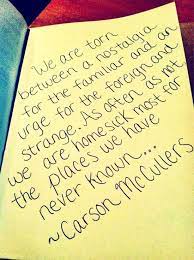 We are torn
between a nostalgia
for the familiar and an
urge for the foreign and
strange. As often as not
we are homesick most for
the places we have
never known...
~Carson McCullers